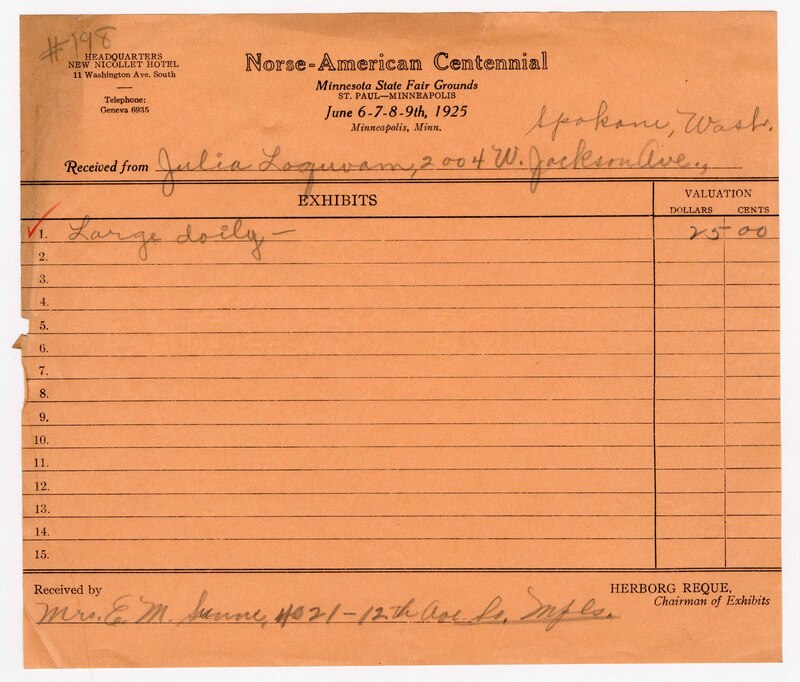 #198
HEADQUARTERS
NEW NICOLLET HOTEL
11 Washington Ave. South
Telephone:
Geneva 6935
Norse-American Centennial
Minnesota State Fair Grounds
ST. PAUL—MINNEAPOLIS
June 6-7-8-9th, 1925
Minneapolis, Minn.
Spokane, Wash.
Received from Julia Loquvam, 2004 W. Jackson Ave.,
EXHIBITS
VALUATION
DOLLARS CENTS
1. Large doily — 25 00
2.
3.
4.
5.
6.
7.
8.
9.
10.
11.
12.
13.
14.
15.
Received by
HERBORG REQUE,
Chairman of Exhibits
Mrs. E. M. 4021-12th Ave So. Mpls.